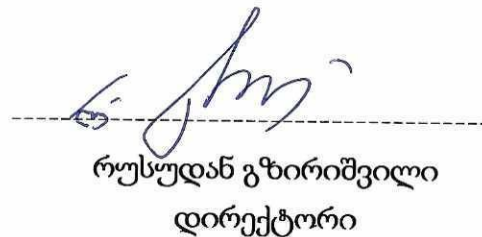 რუსუდან გზირიშვილი
დირექტორი